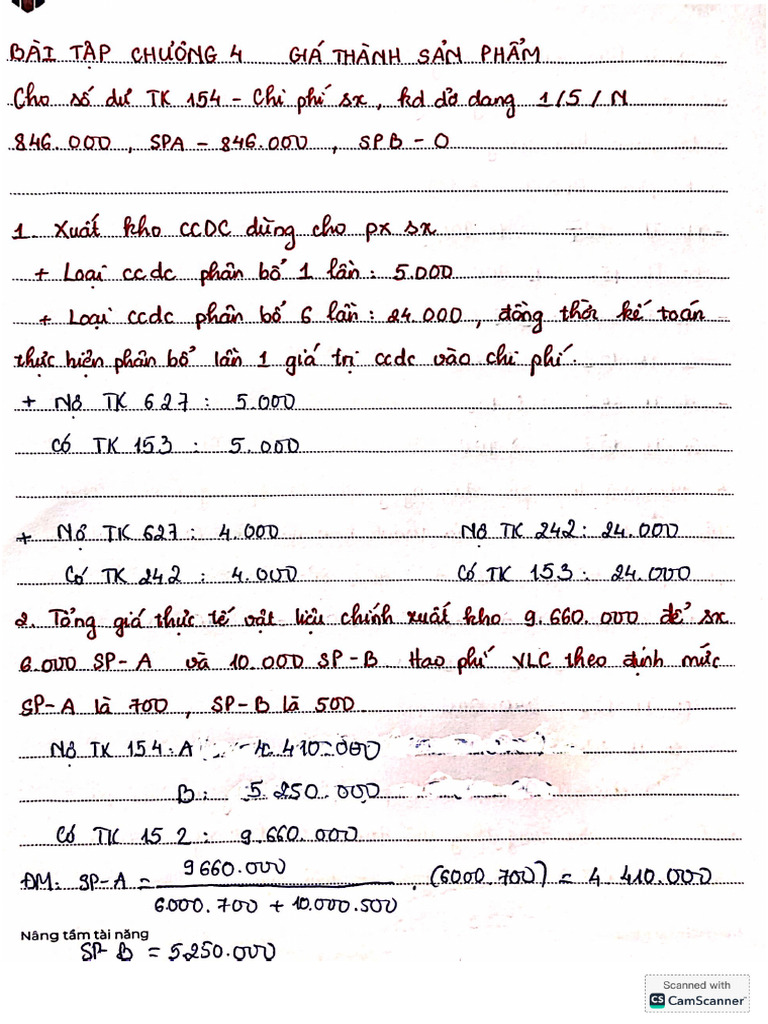 BÀI TẬP CHƯƠNG 4 GIÁ THÀNH SẢN PHẨM
Cho số dư TK 154 - Chi phí sx, kd dở dang 1/5/N
846.000, SPA - 846.000, SPB - 0
1. Xuất kho CCDC dùng cho px sx
+ Loại ccdc phân bổ 1 lần: 5.000
+ Loại ccdc phân bổ 6 lần: 24.000, đồng thời kế toán
thực hiện phân bổ lần 1 giá trị ccdc vào chi phí.
+ Nợ TK 627: 5.000
Có TK 153: 5.000
+ Nợ TK 627: 4.000 Nợ TK 242: 24.000
Có TK 242: 4.000 Có TK 153: 24.000
2. Tổng giá thực tế vật liệu chính xuất kho 9.660.000 để sx
6.000 SP-A và 10.000 SP-B Hao phí VLC theo định mức
SP-A là 700, SP-B là 500
Nợ TK 154: A 4.410.000
B: 5.250.000
Có TK 152: 9.660.000
ĐM: SP-A = 9660.000 / 6.000.700 + 10.000.500 . (6000.700) = 4.410.000
Nâng tầm tài năng
SP-B = 5250.000
Scanned with
CS CamScanner